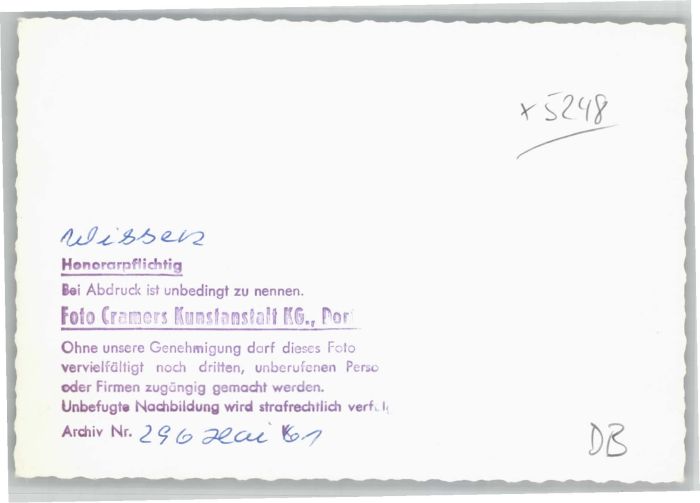 x 5248
Wissen
Honorarpflichtig
Bei Abdruck ist unbedingt zu nennen.
Foto Cramers Kunstanstalt KG., Dor
Ohne unsere Genehmigung darf dieses Foto
vervielfältigt noch dritten, unberufenen Perso
oder Firmen zugängig gemacht werden.
Unbefugte Nachbildung wird strafrechtlich verfolg
Archiv Nr. 296 Mai 61
DB